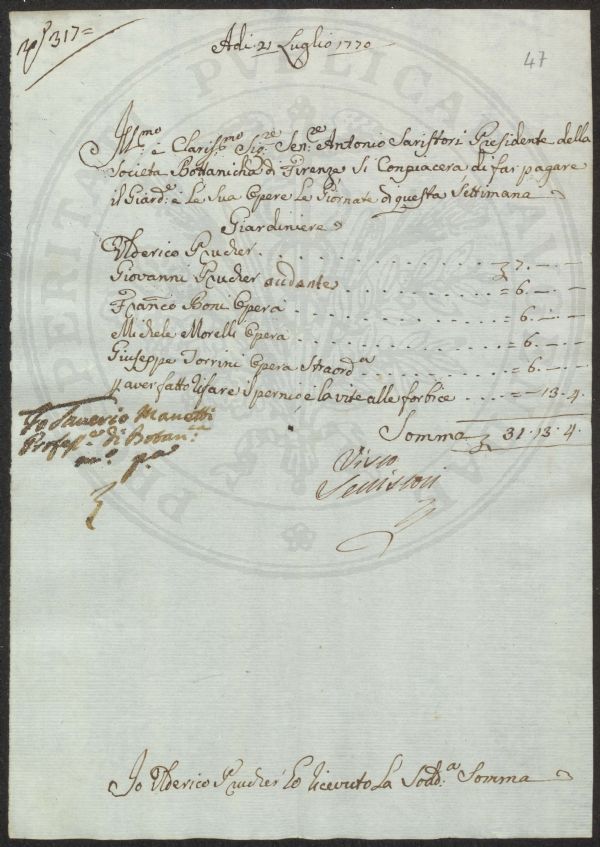 317=
Adi. 21 Luglio 1770
47
Ill:mo e Clariss:mo Sig:re Sen:re Antonio Saristori Presidente della
Societa Bottanicha di Firenze si Conpiacera di far pagare
il Giard:e e Le Sua Opere Le Giornate di questa Settimana
Giardiniere
Ulderico Prucher . . . 7. — —
Giovanni Prucher audante . . . = 6. — —
Fran:co Boni Opera . . . = 6. — —
Michele Morelli Opera . . . = 6. — —
Giuseppe Torrini Opera Straord:a . . . = 6. — —
p aver fatto rifare il pernio e la vite alle forbice . . . = — 13. 4.
Somma 31. 13. 4.
Io Saverio Manetti
Profess:e di Botan:ca
m:o p:a
Visto
Seristori
Io Ulderico Prucher ho ricevuto La Sodd:a Somma
PERITIA PVBLICA